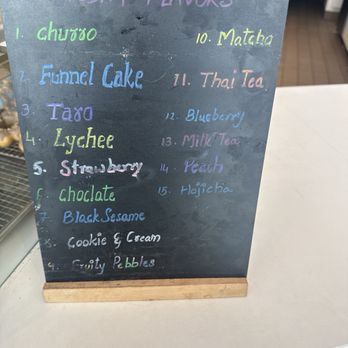 FLAVORS
1. churro
2. Funnel Cake
3. Taro
4. Lychee
5. Strawberry
6 choclate
7. Black Sesame
8. Cookie & Cream
9. Fruity Pebbles
10. Matcha
11. Thai Tea
12. Blueberry
13. Milk Tea
14. Peach
15. Hojicha